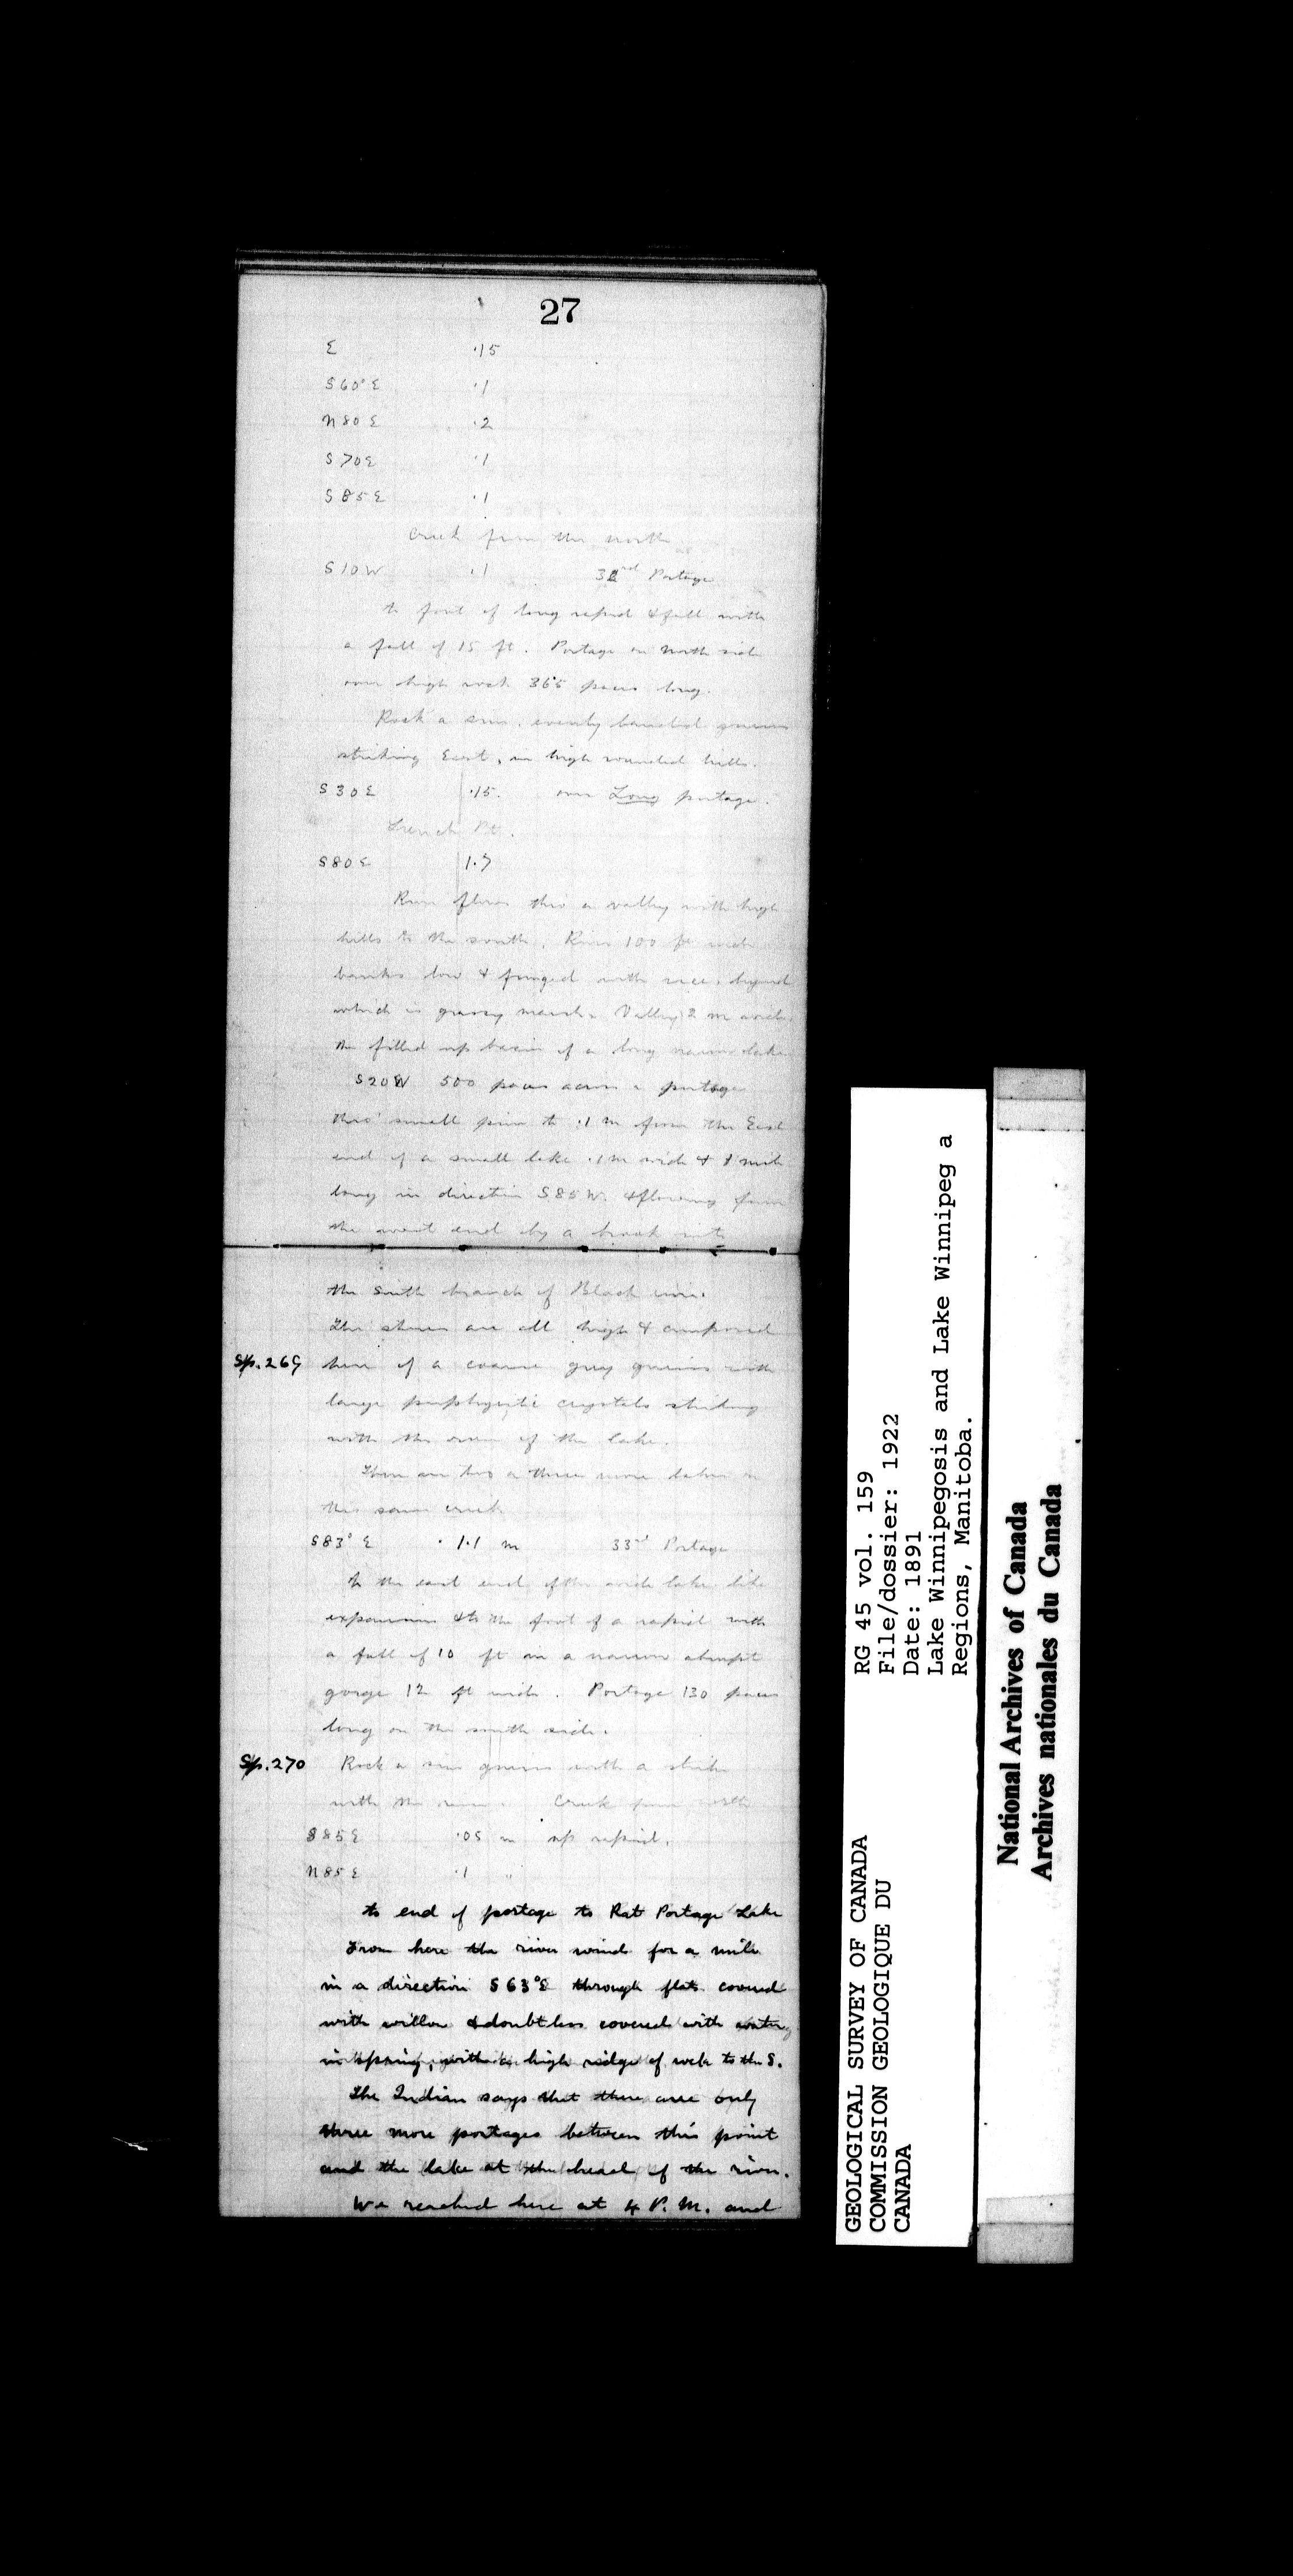 27
E .15
S60°E .1
N80E .2
S70E .1
S85E .1
Creek from the north
S10W .1 32nd Portage
to foot of long rapid & fall with
a fall of 15 ft. Portage on north side
over high rock 365 paces long.
Rock a evenly banded gneiss
striking East, in high rounded hills.
S30E .15. over Long portage.
French Pt.
S80E 1.7
River flows thro a valley with high
hills to the south. River 100 ft wide
banks low & fringed with beyond
which is grassy marsh. Valley 2 m wide
the filled up basin of a long narrow lake
S20W 500 paces across a portage
thro' small pine to .1 m from the East
end of a small lake .1m wide & 1 mile
long in direction S85W. & flowing from
the west end by a brook into
the South branch of Black river.
The shores are all high & composed
Sp. 269 here of a coarse grey gneiss with
large porphyritic crystals striking
with the of the lake.
There are two or three more lakes on
the same creek
S83°E 1.1 m 33rd Portage
to the east end of the wide lake like
expansion & to the foot of a rapid with
a fall of 10 ft in a narrow abrupt
gorge 12 ft wide. Portage 130 paces
long on the south side.
Sp. 270 Rock a gneiss with a strike
with the river. Creek from north
S85E .05 m up rapid.
N85E .1 "
to end of portage to Rat Portage Lake
From here the river winds for a mile
in a direction S63°E through flats covered
with willow & doubtless covered with water
in spring, with a high ridge of rock to the S.
The Indian says that there are only
three more portages between this point
and the lake at the head of the river.
We reached here at 4 P.M. and
RG 45 vol. 159
File/dossier: 1922
Date: 1891
Lake Winnipegosis and Lake Winnipeg a
Regions, Manitoba.
GEOLOGICAL SURVEY OF CANADA
COMMISSION GEOLOGIQUE DU
CANADA
National Archives of Canada
Archives nationales du Canada